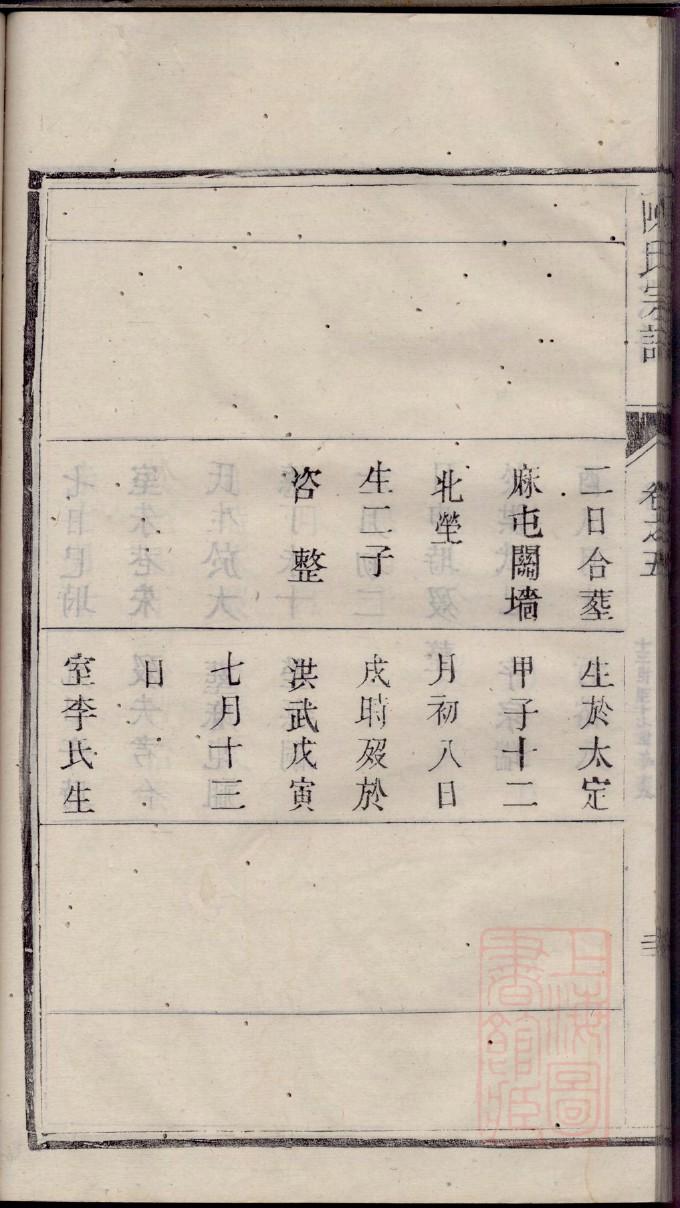 陳氏宗譜
卷之五
二日合塟
麻屯關墻
北塋
生二子
咨 整
生於太定
甲子十二
月初八日
戌時殁於
洪武戊寅
七月十三
日
室李氏生
上海圖
書館藏